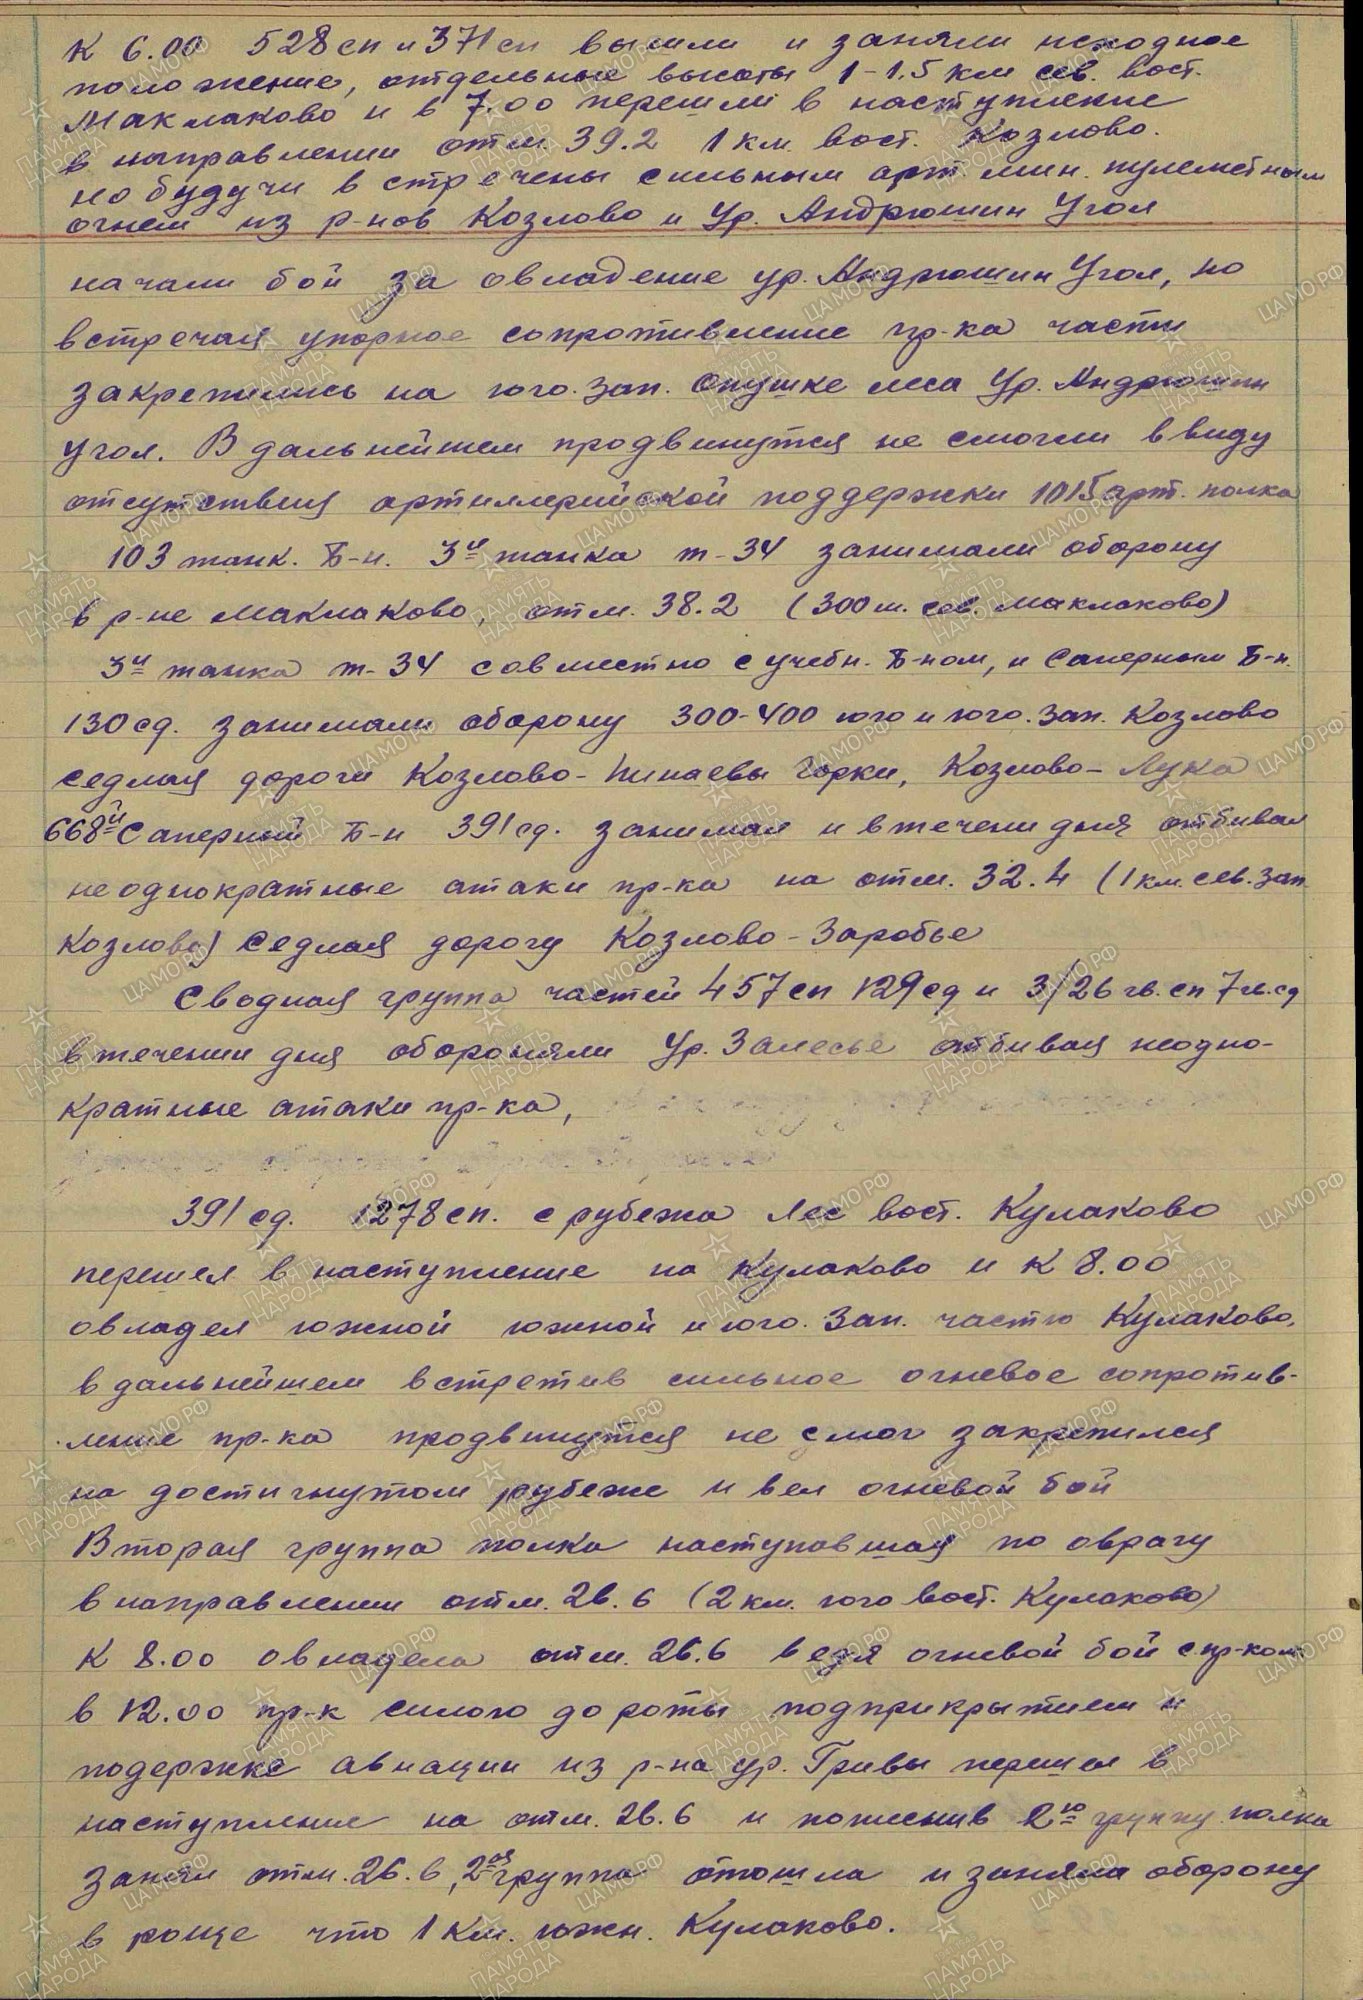 К 6.00 528 сп и 371 сп вышли и заняли исходное
положение, отдельные высоты 1-1,5 км сев. вост.
Маклаково и в 7.00 перешли в наступление
в направлении отм. 39.2 1 км вост. Козлово.
но будучи встречены сильным арт. мин. пулеметным
огнем из р-нов Козлово и Ур. Андрюшин Угол
начали бой за овладение ур. Андрюшин Угол, но
встречая упорное сопротивление пр-ка части
закрепились на юго. зап. опушке леса Ур. Андрюшин
угол. В дальнейшем продвинутся не смогли ввиду
отсутствия артиллерийской поддержки 1015 арт. полка
103 танк. Б-н. 3и танка т-34 занимали оборону
в р-не Маклаково, отм. 38.2 (300 м. сев. Маклаково)
3и танка т-34 совместно с учебн. Б-ном, и Саперным Б-н.
130 сд. занимали оборону 300-400 юго и юго. зап. Козлово
седлая дороги Козлово-Пинаевы Горки, Козлово-Лука
668й Саперный Б-н 391 сд. занимал и втечени дня отбивал
неоднократные атаки пр-ка на отм. 32.4 (1 км. сев. зап.
Козлово) седлая дорогу Козлово-Заробье
Сводная группа частей 457 сп 129 сд и 3/26 гв. сп 7 гв. сд
втечении дня обороняли Ур. Залесье отбивая неодно-
кратные атаки пр-ка,
391 сд. 1278 сп. с рубежа лес вост. Кулаково
перешел в наступление на Кулаково и к 8.00
овладел южной южной и юго. зап. частю Кулаково,
в дальнейшем встретив сильное огневое сопротив-
ление пр-ка продвинутся не смог закрепился
на достигнутом рубеже и вел огневой бой
Вторая группа полка наступавшая по оврагу
в направлении отм. 26.6 (2 км. юго вост. Кулаково)
К 8.00 овладела отм. 26.6 ведя огневой бой с пр-ком
в 12.00 пр-к силою до роты подприкрытием и
подержке авиации из р-на ур. Гривы перешел в
наступление на отм. 26.6 и потеснив 2ю группу полка
занял отм. 26.6, 2ая группа отошла и заняла оборону
в роще что 1 км. южн. Кулаково.
ПАМЯТЬ НАРОДА
ЦАМО.РФ